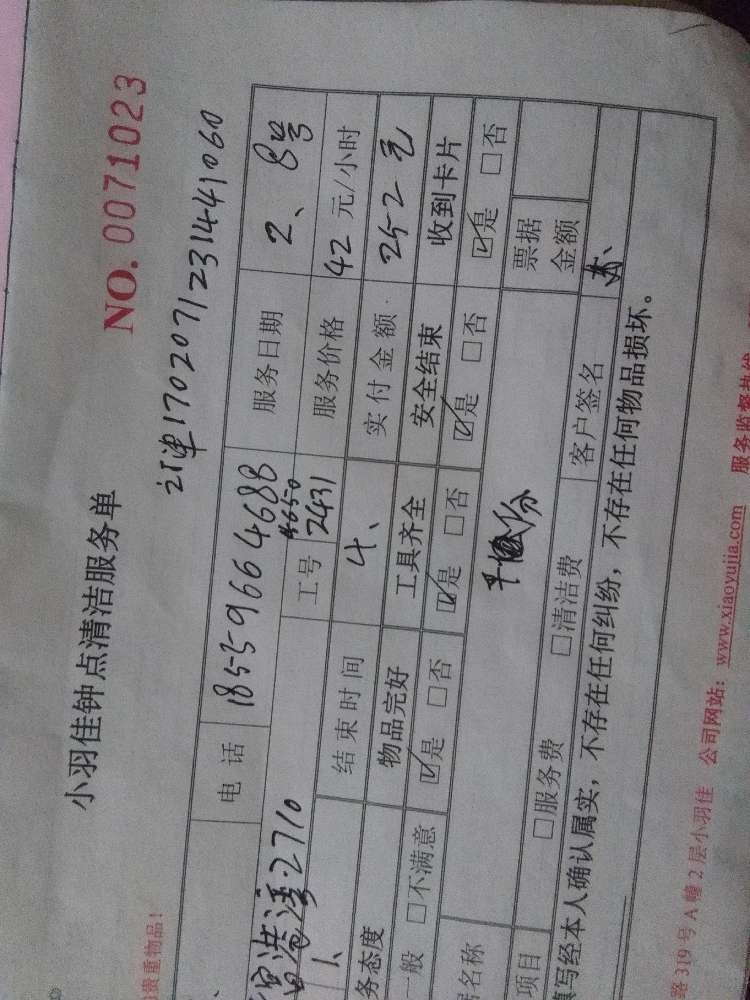 小羽佳钟点清洁服务单
NO. 0071023
贵重物品！
订单1702071231441060
电话 18559664688 服务日期 2、8号
湾·2710 工号 4650 2431 服务价格 42元/小时
结束时间 4、 实付金额 252元
务态度 物品完好 工具齐全 安全结束 收到卡片
一般 □不满意 ☑是 □否 ☑是 □否 ☑是 □否 ☑是 □否
名称 票据金额
项目 □服务费 □清洁费 客户签名
填写经本人确认属实，不存在任何纠纷，不存在任何物品损坏。
路319号A幢2层小羽佳 公司网站：www.xiaoyujia.com 服务监督热线